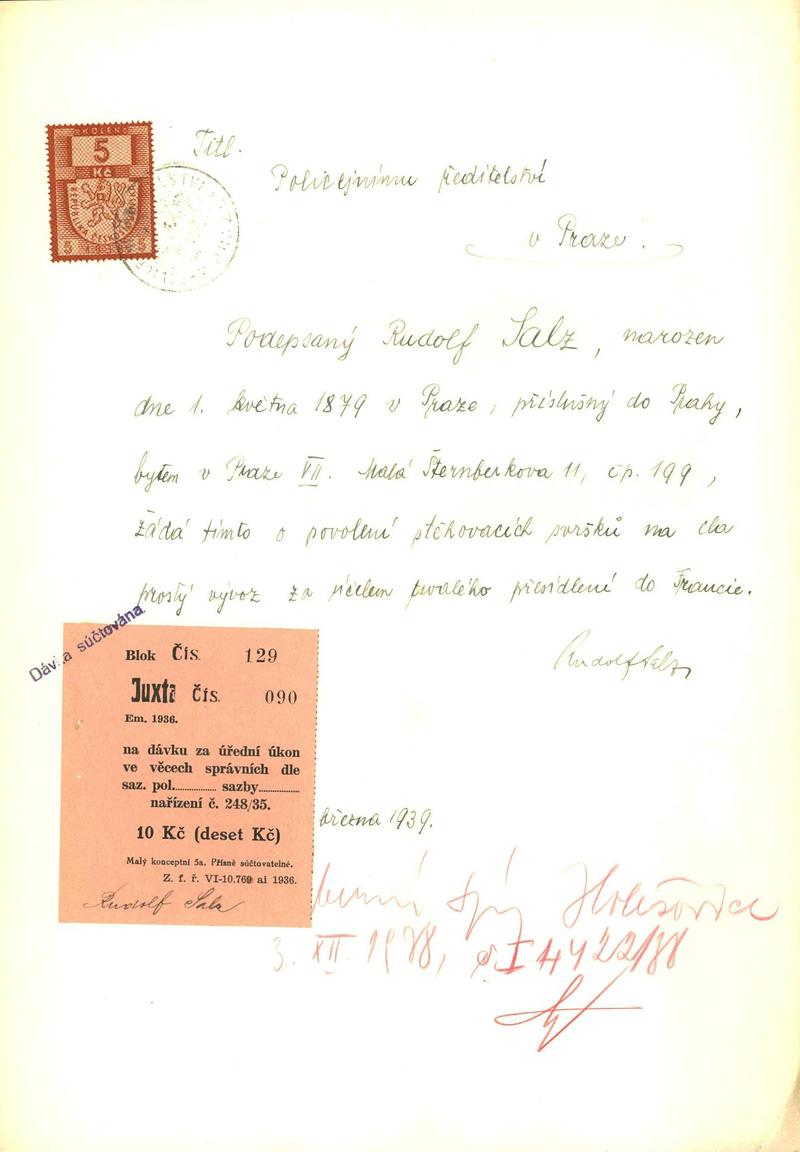 KOLEK
5
Kč
Titl.
Policejnímu ředitelství
v Praze.
Podepsaný Rudolf Salz, narozen
dne 1. května 1879 v Praze, příslušný do Prahy,
bytem v Praze VII. Malá Šternberkova 11, čp. 199,
žádá tímto o povolení stěhovacích svršků na cla
prostý vývoz za účelem trvalého přesídlení do Francie.
Rudolf Salz
Dávka súčtována
Blok Čís. 129
Juxta čís. 090
Em. 1936.
na dávku za úřední úkon
ve věcech správních dle
saz. pol. sazby
nařízení č. 248/35.
10 Kč (deset Kč)
Malý konceptní 5a. Přísně súčtovatelné.
Z. f. ř. VI-10.769 ai 1936.
Rudolf Salz
března 1939.
Holešovice
3. XII. 1938,